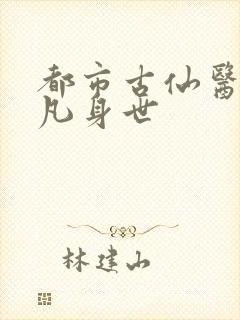 都市古仙醫
凡身世
林建山